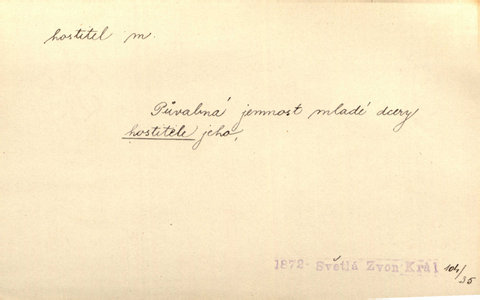 hostitel m.
Půvabná jemnost mladé dcery
hostitele jeho,
1872- Světlá Zvon Král 104/35